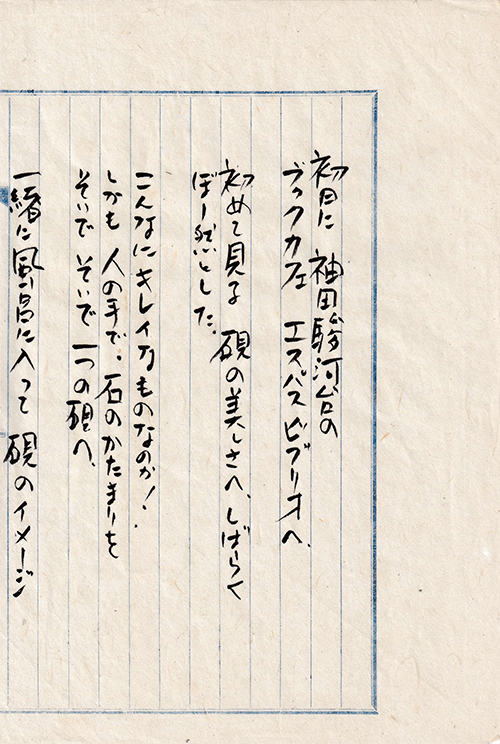 初日に 神田駿河台の
ブックカフェ エスパス ビブリオへ、
初めて見る 硯の美しさへ、しばらく
ぼー然とした。
こんなにキレイなものなのか!
しかも 人の手で。石のかたまりを
そいで そいで 一つの硯へ、
一緒に風呂に入って 硯のイメージ